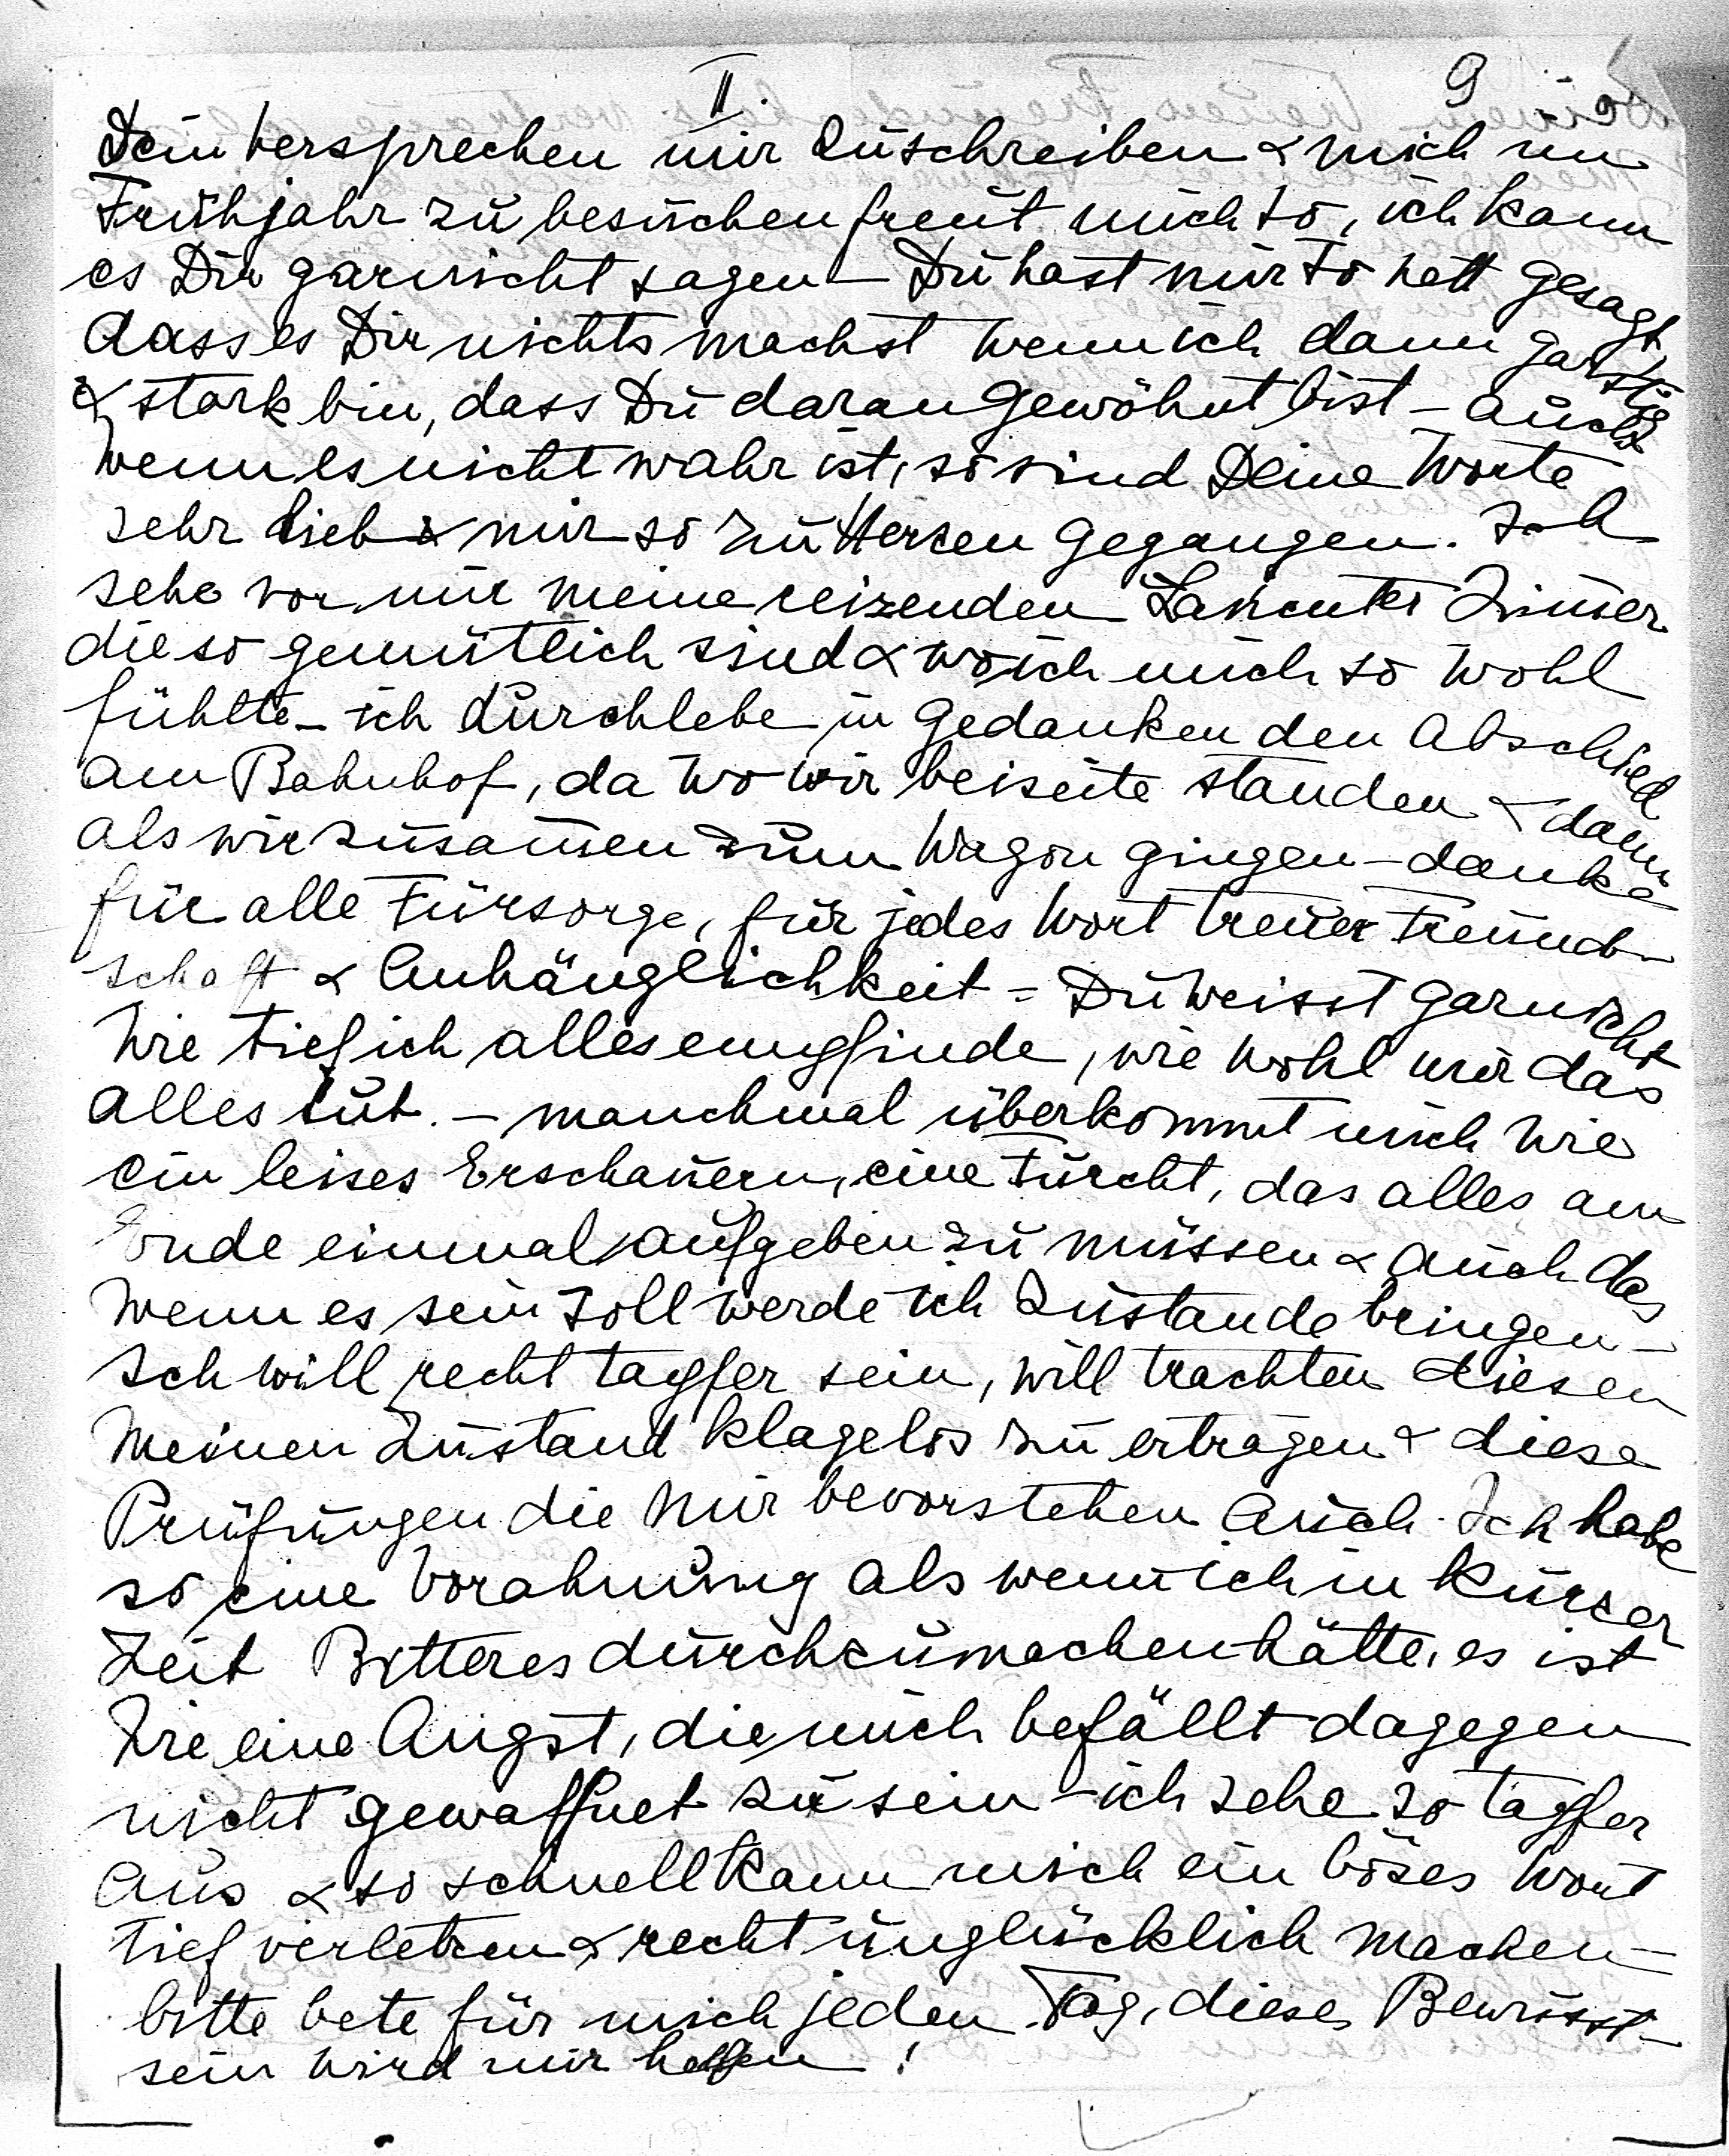 II.
9
Dein Versprechen mir zuschreiben & mich im
Frühjahr zu besuchen freut mich so, ich kann
es Dir garnicht sagen – Du hast mir so nett gesagt
dass es Dir nichts machst wenn ich dann garstig
& stark bin, dass Du daran gewöhnt bist – auch
wenn es nicht wahr ist, so sind Deine Worte
sehr lieb & mir so zu Herzen gegangen. Ich
sehe vor mir meine reizenden Lancuter Zimmer
die so gemütlich sind & wo ich mich so wohl
fühlte – ich durchlebe in Gedanken den Abschied
am Bahnhof, da wo wir beiseite standen & dann
als wir zusammen zum Wagon gingen – danke
für alle Fürsorge, für jedes Wort treuer Freund-
schaft & Anhänglichkeit – Du weisst garnicht
wie tief ich alles empfinde, wie wohl mir das
alles tut. – manchmal überkommt mich wie
ein leises Erschauern, eine Furcht, das alles am
Ende einmal aufgeben zu müssen & auch das
wenn es sein soll werde ich zustande bringen –
Ich will recht tapfer sein, will trachten diesen
meinen Zustand klagelos zu ertragen & diese
Prüfungen die mir bevorstehen auch. Ich habe
so eine Vorahnung als wenn ich in kurzer
Zeit Bitteres durchzumachen hätte, es ist
wie eine Angst, die mich befällt dagegen
nicht gewaffnet zu sein – ich sehe so tapfer
aus & so schnell kann mich ein böses Wort
tief verletzen & recht unglücklich machen –
bitte bete für mich jeden Tag, dieses Bewusst-
sein wird mir helfen!